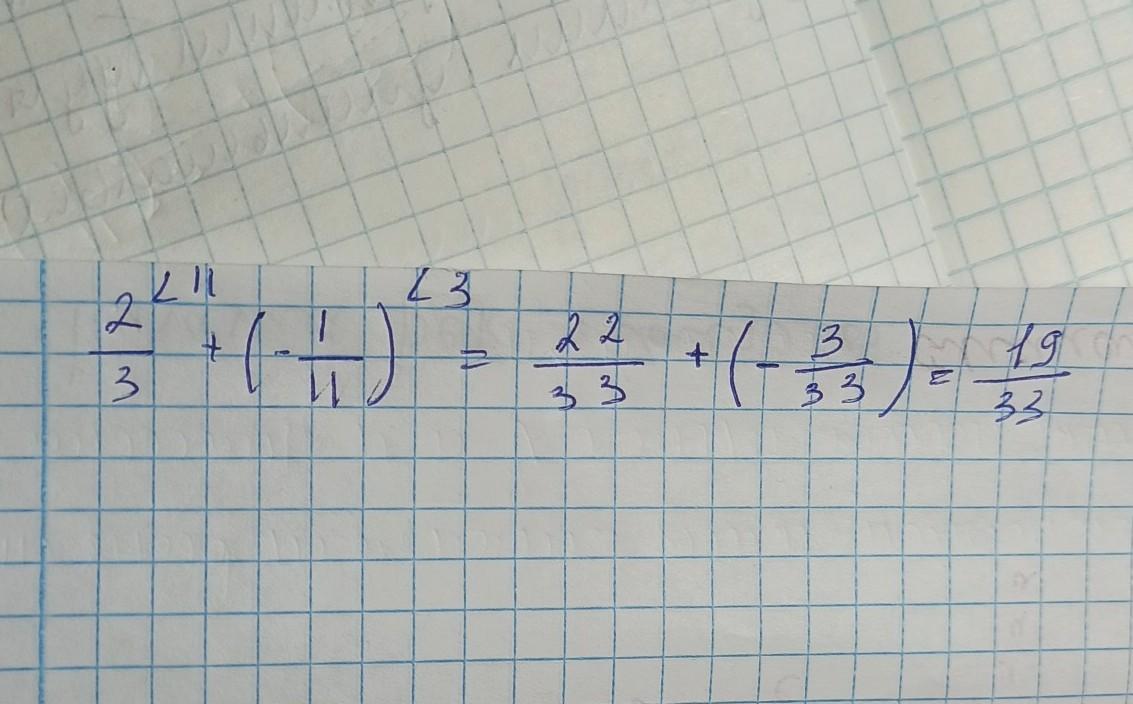 2/3 <11 + (- 1/11) <3 = 22/33 + (- 3/33) = 19/33